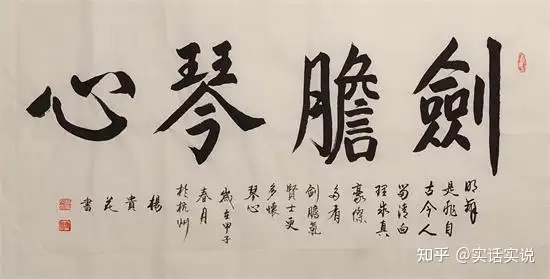 劍膽琴心
明辨
是非自
古今人
清白
理求真
豪傑
多有
劍膽氣
賢士更
多懷
琴心
歲在甲子
春月
於杭州
楊貴花書
知乎 @实话实说